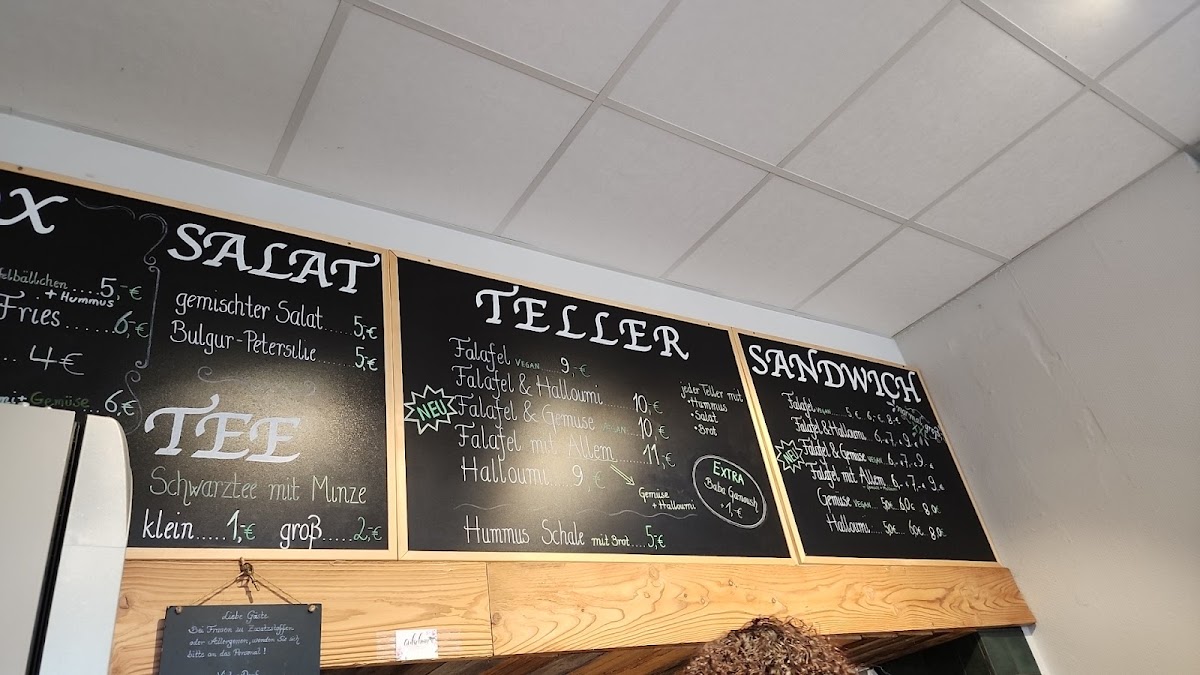 X
elbällchen....5,-€
+ Hummus
Fries......6,-€
....4€
mit Gemüse..6,-€
SALAT
gemischter Salat.....5,-€
Bulgur-Petersilie.....5,-€
TEE
Schwarztee mit Minze
klein.....1,-€ groß.....2,-€
TELLER
Falafel VEGAN....9,-€
Falafel & Halloumi......10,-€
NEU
Falafel & Gemüse VEGAN...10,-€
Falafel mit Allem......11,-€
Halloumi...9,-€
Gemüse
+ Halloumi
Hummus Schale mit Brot....5,-€
jeder Teller mit
•Hummus
•Salat
•Brot
EXTRA
Baba Ganoush
+1,-€
SANDWICH
Falafel VEGAN....5,-€ 6,-€ 8,-€
Falafel & Halloumi..6,-7,-9,-€
NEU
Falafel & Gemüse VEGAN...6,-7,-9,-€
Falafel mit Allem 6,-7,-9,-€
Gemüse VEGAN...
Halloumi.....
Liebe Gäste
Bei Fragen zu Zusatzstoffen
oder Allergenen, wenden Sie sich
bitte an das Personal!